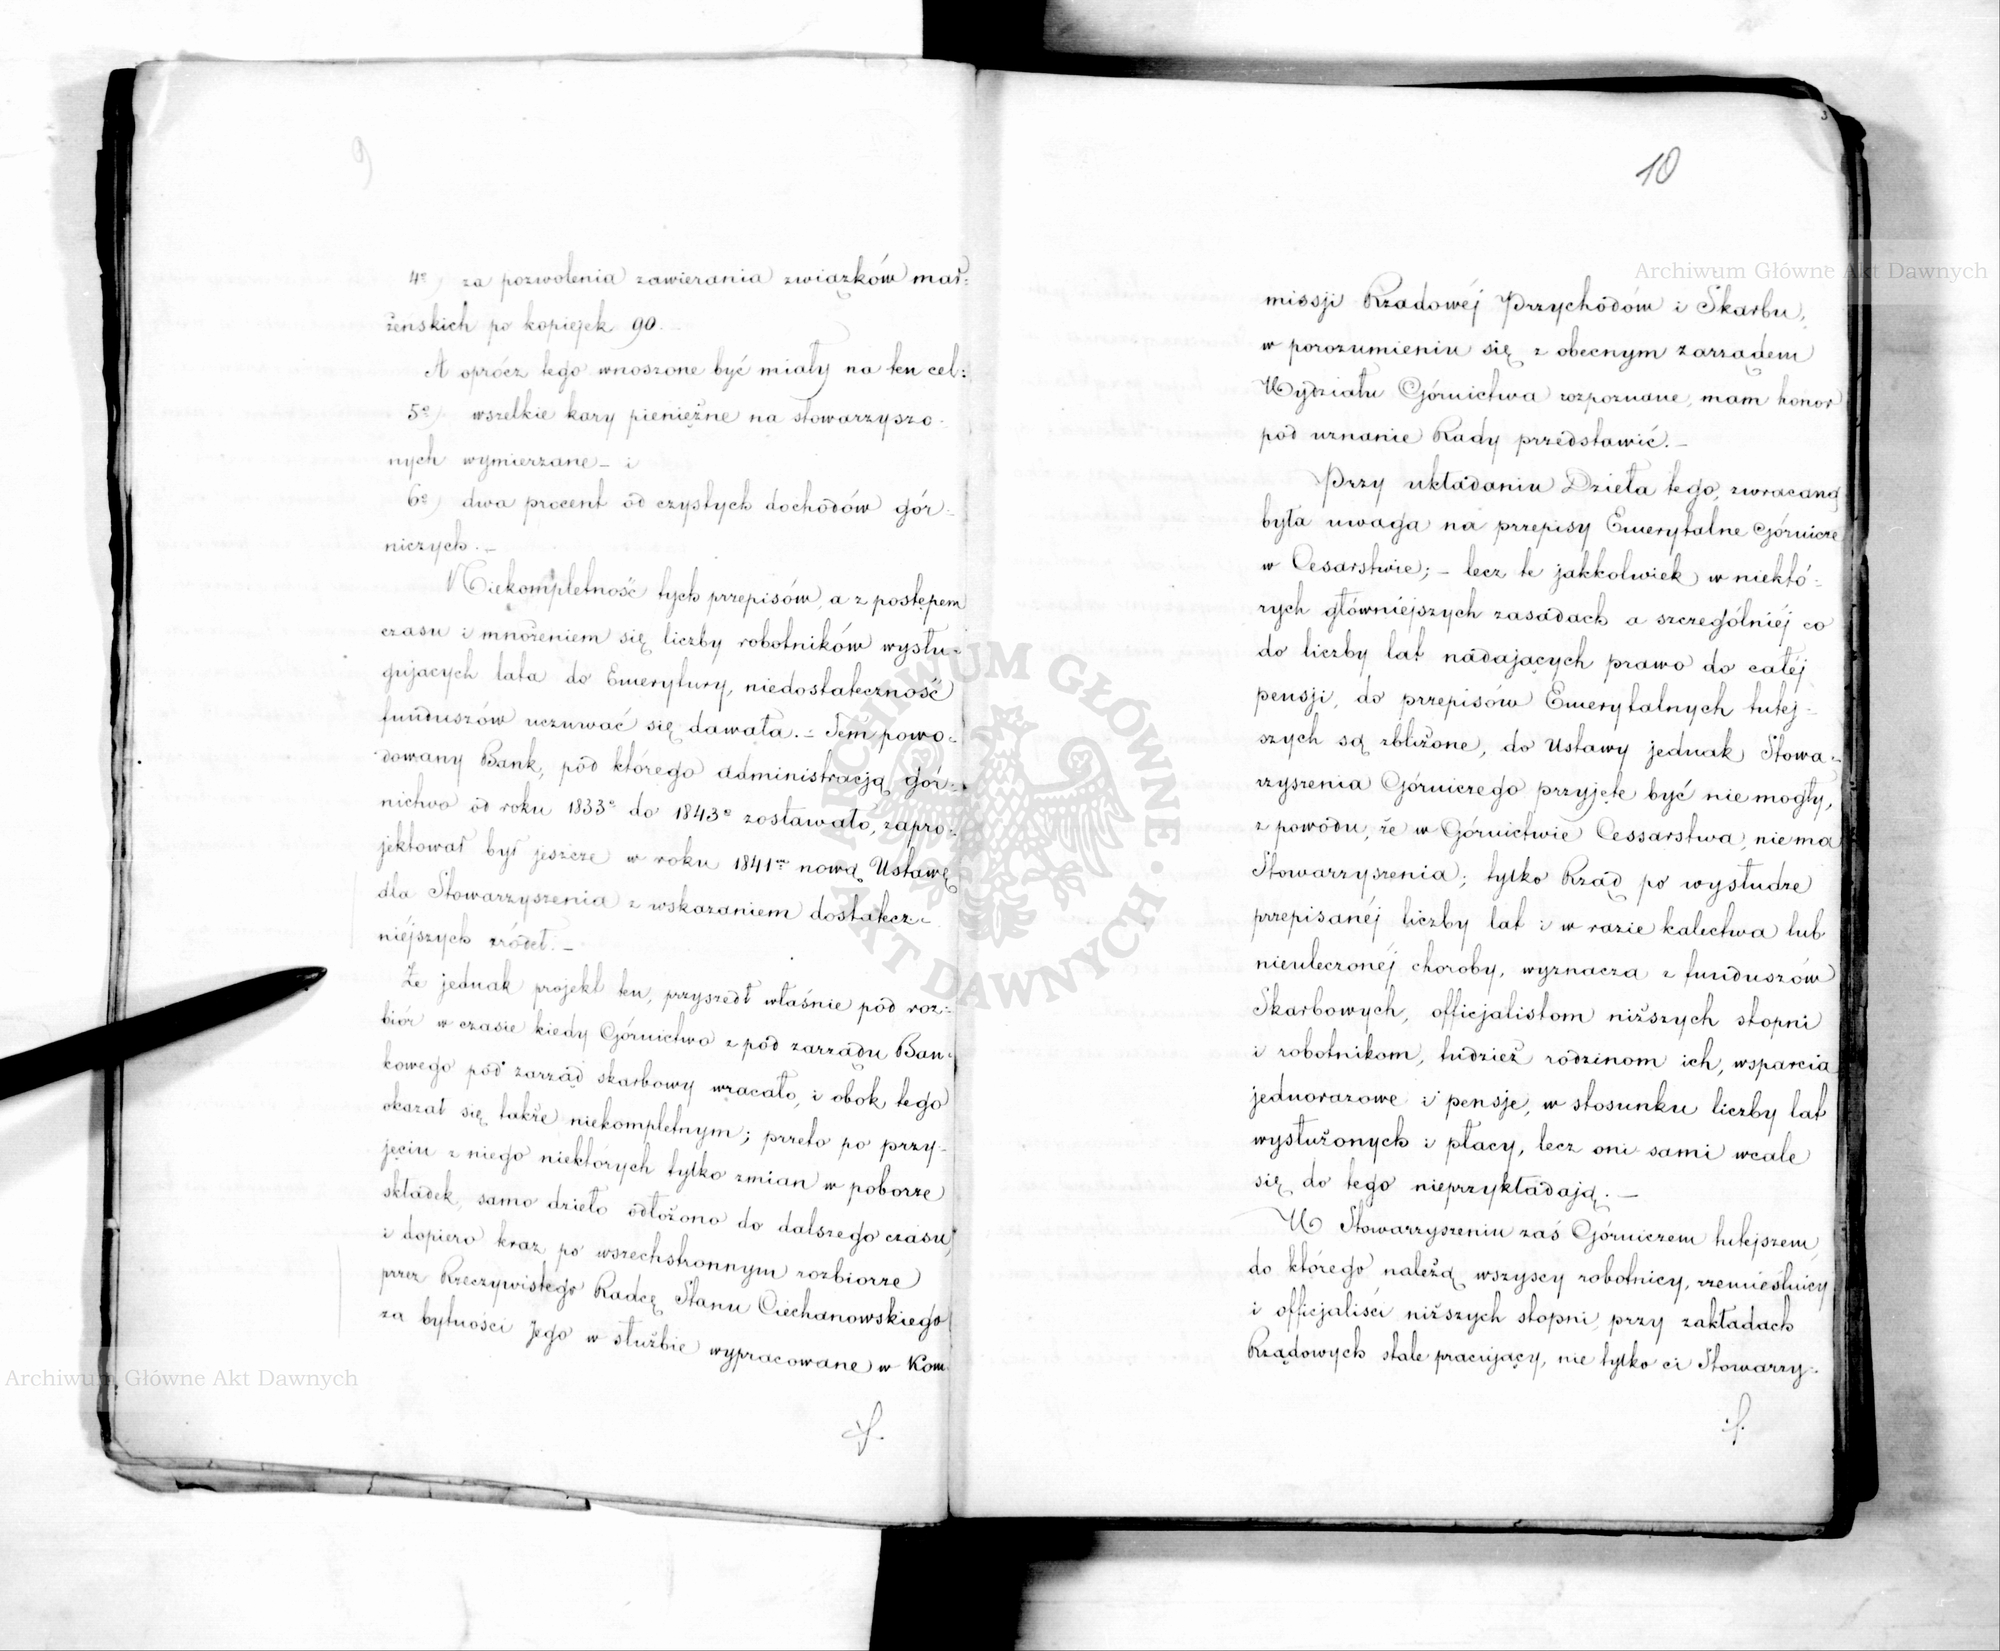 9
4º) za pozwolenia zawierania związków mał:
żeńskich po kopiejek 90.
A oprócz tego wnoszone być miały na ten cel:
5º) wszelkie kary pieniężne na stowarzyszo-
nych wymierzane – i
6º) dwa procent od czystych dochodów gór-
niczych. –
Niekompletność tych przepisów, a z postępem
czasu i mnożeniem się liczby robotników wysłu-
gujących lata do Emerytury, niedostateczność
funduszów uczuwać się dawała. – Tém powo-
dowany Bank, pod którego administracją gór-
nictwo od roku 1833º do 1843º zostawało, zapro-
jektował był jeszcze w roku 1841ᵐ nową Ustawę
dla Stowarzyszenia z wskazaniem dostatecz-
niejszych źródeł. –
Że jednak projekt ten, przyszedł właśnie pod roz-
biór w czasie kiedy Górnictwo z pod zarządu Ban-
kowego pod zarząd skarbowy wracało, i obok tego
okazał się także niekompletnym; przeto po przy-
jęciu z niego niektórych tylko zmian w poborze
składek, samo dzieło odłożono do dalszego czasu,
i dopiero teraz po wszechstronnym rozbiorze
przez Rzeczywistego Radcę Stanu Ciechanowskiego
za bytności Jego w służbie wypracowane w Kom
10
missji Rządowéj Przychodów i Skarbu,
w porozumieniu się z obecnym zarządem
Wydziału Górnictwa rozpoznane, mam honor
pod uznanie Rady przedstawić. –
Przy układaniu Dzieła tego, zwracaną
była uwaga na przepisy Emerytalne Górnicze
w Cesarstwie; – lecz te jakkolwiek w niektó-
rych główniejszych zasadach a szczególniéj co
do liczby lat nadających prawo do całéj
pensji, do przepisów Emerytalnych tutej-
szych są zbliżone, do Ustawy jednak Stowa-
rzyszenia Górniczego przyjęte być nie mogły,
z powodu, że w Górnictwie Cessarstwa, nie ma
Stowarzyszenia; tylko Rząd po wysłudze
przepisanéj liczby lat i w razie kalectwa lub
nieuleczonéj choroby, wyznacza z funduszów
Skarbowych, officjalistom niższych stopni
i robotnikom, tudzież rodzinom ich, wsparcia
jednorazowe i pensje, w stosunku liczby lat
wysłużonych i płacy, lecz oni sami wcale
się do tego nieprzykładają. –
W Stowarzyszeniu zaś Górniczem tutejszem,
do którego należą wszyscy robotnicy, rzemieślnicy
i officjaliści niższych stopni, przy zakładach
Rządowych stale pracujący, nie tylko ci Stowarzy-
Archiwum Główne Akt Dawnych
Archiwum Główne Akt Dawnych
ARCHIWUM GŁÓWNE AKT DAWNYCH